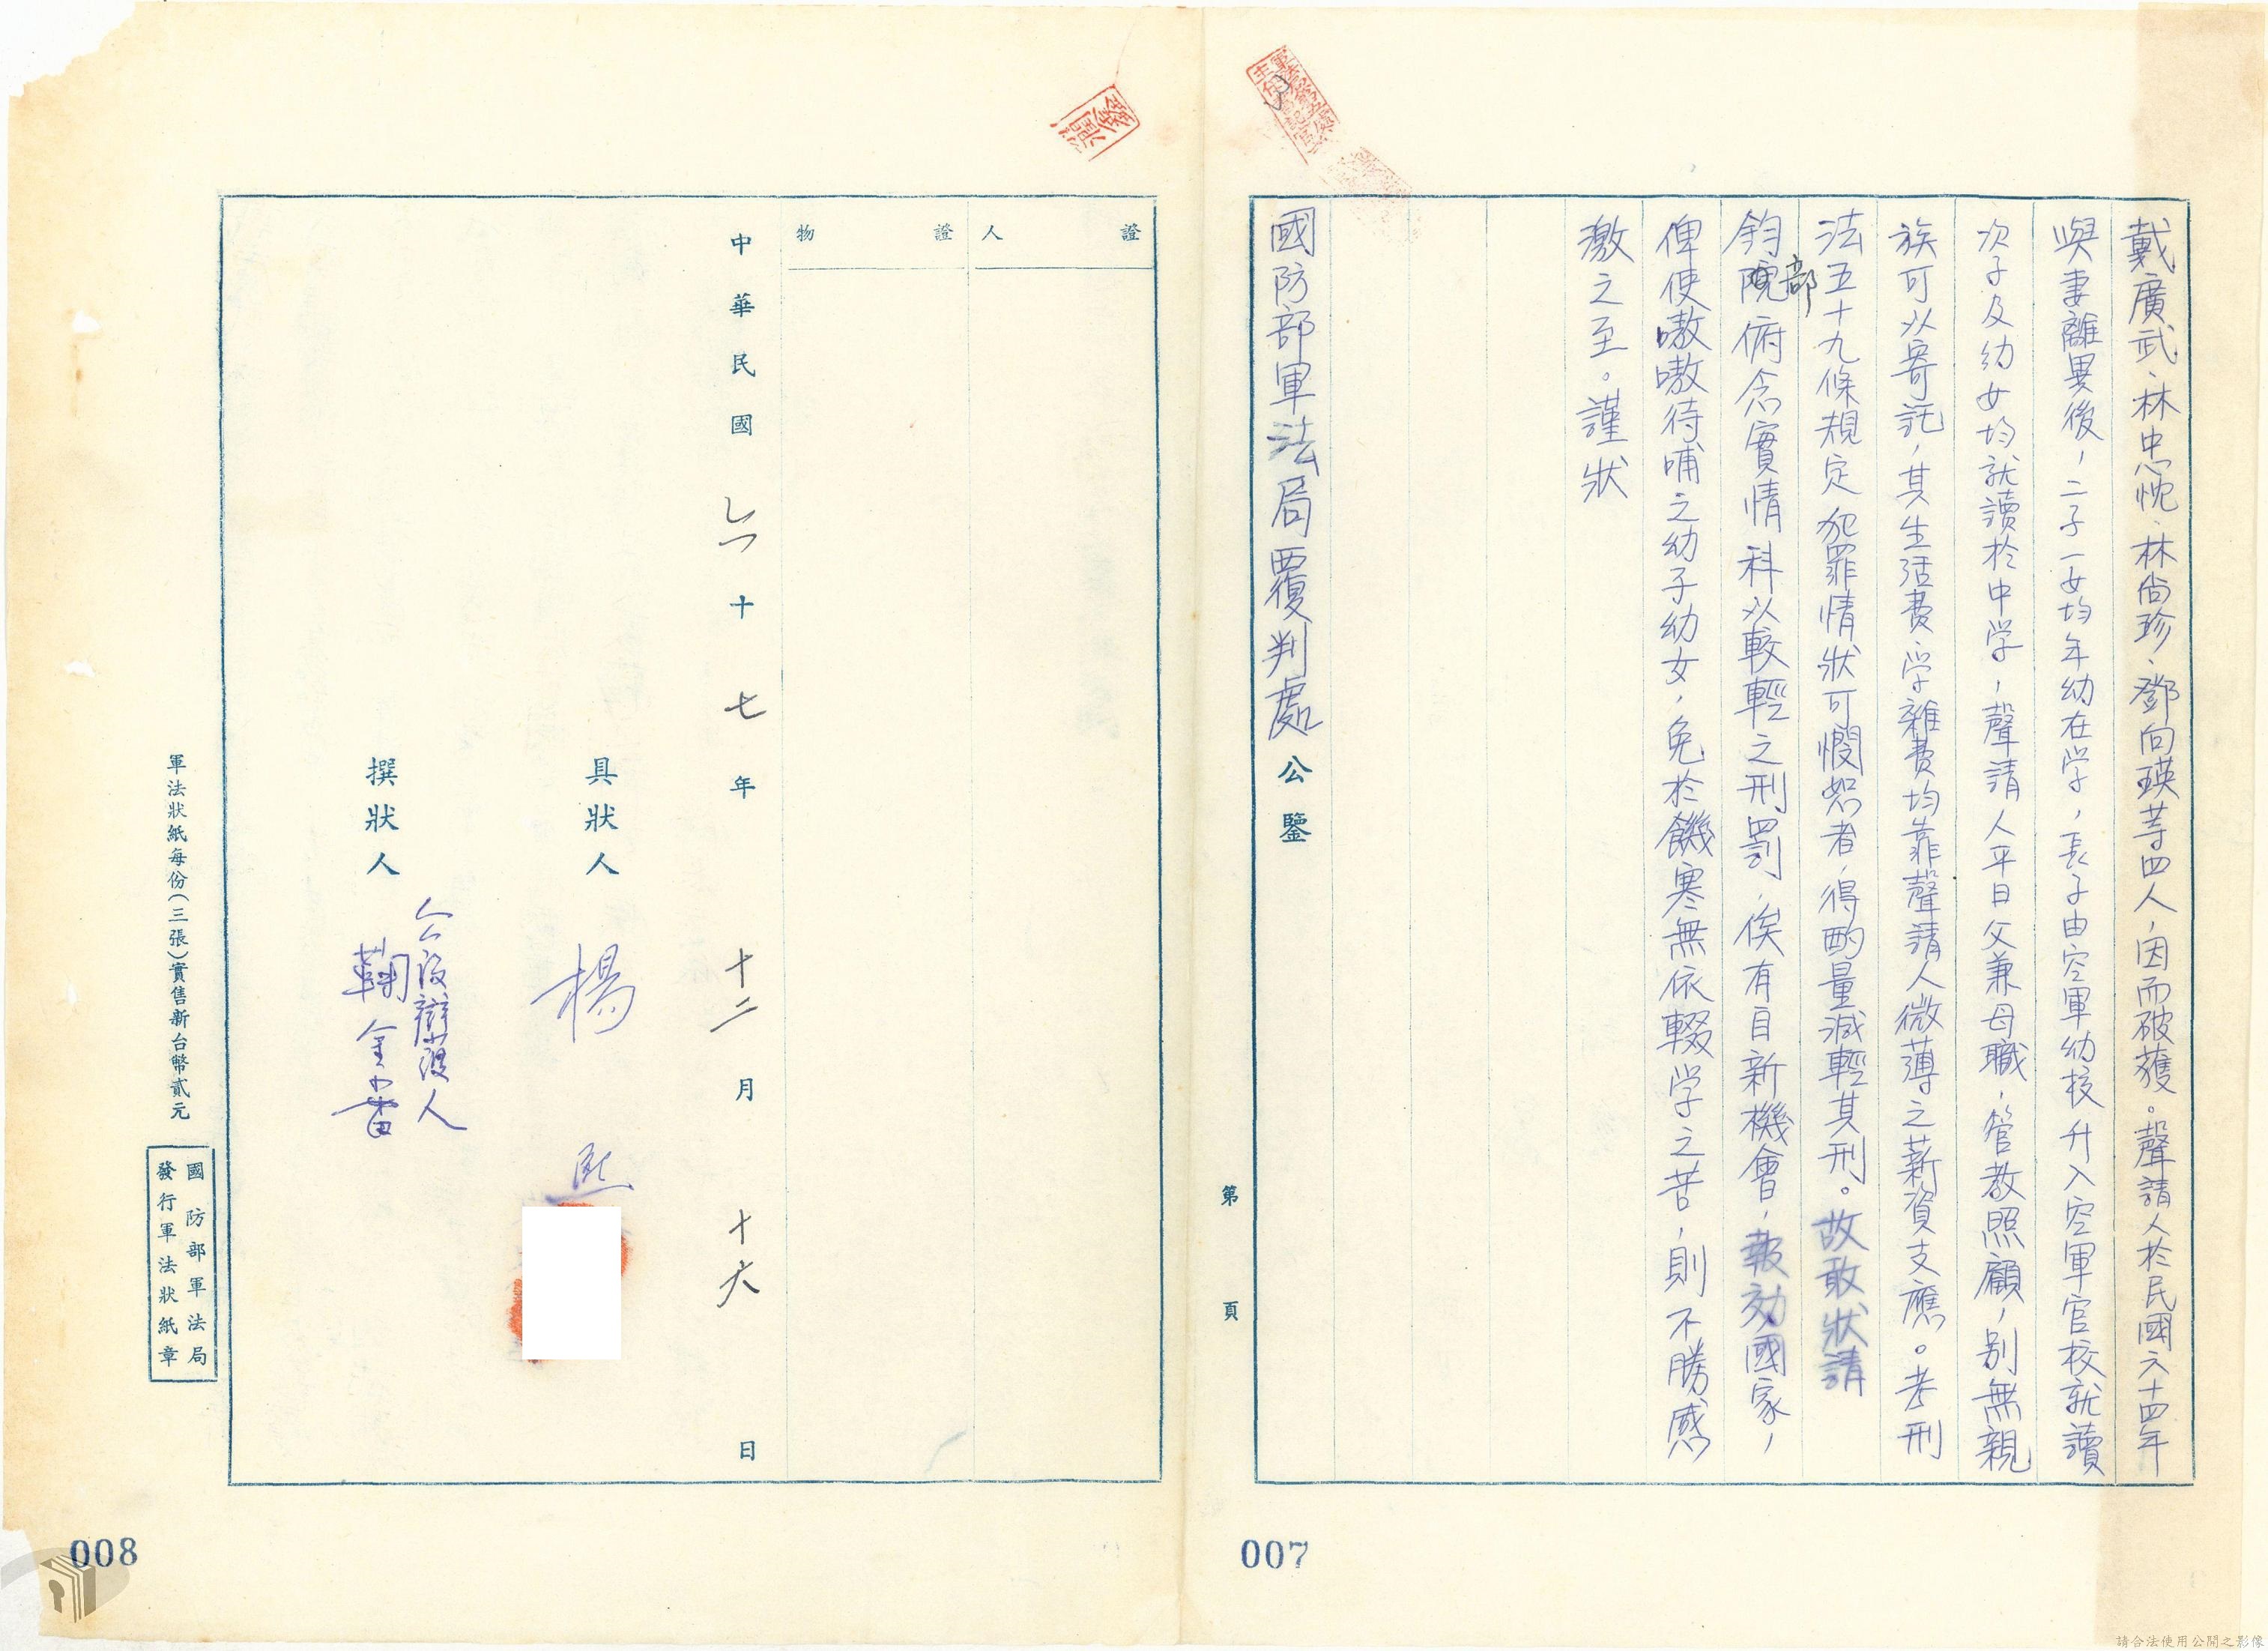 戴廣武、林忠悅、林尚珍、鄧向瑛等四人，因而破獲。聲請人於民國六十四年
與妻離異後，二子一女均年幼在学，長子由空軍幼校升入空軍官校就讀
次子及幼女均就讀於中学，聲請人平日父兼母職，管教照顧，别無親
族可以寄託，其生活費、学雜費均靠聲請人微薄之薪資支應。考刑
法五十九條規定犯罪情狀可憫恕者，得酌量減輕其刑。故敢狀請
鈞院部俯念實情科以較輕之刑罰，俟有自新機會，報効國家，
俾使嗷嗷待哺之幼子幼女，免於饑寒無依輟学之苦，則不勝感
激之至。謹狀
國防部軍法局覆判處公鑒
第 頁
007
證人
證物
中華民國六十七年十二月十六日
具狀人 楊熙
撰狀人 公設辯護人
鞠金蕾
軍法狀紙每份（三張）實售新台幣貳元
國防部軍法局
發行軍法狀紙章
008
請合法使用公開之影像